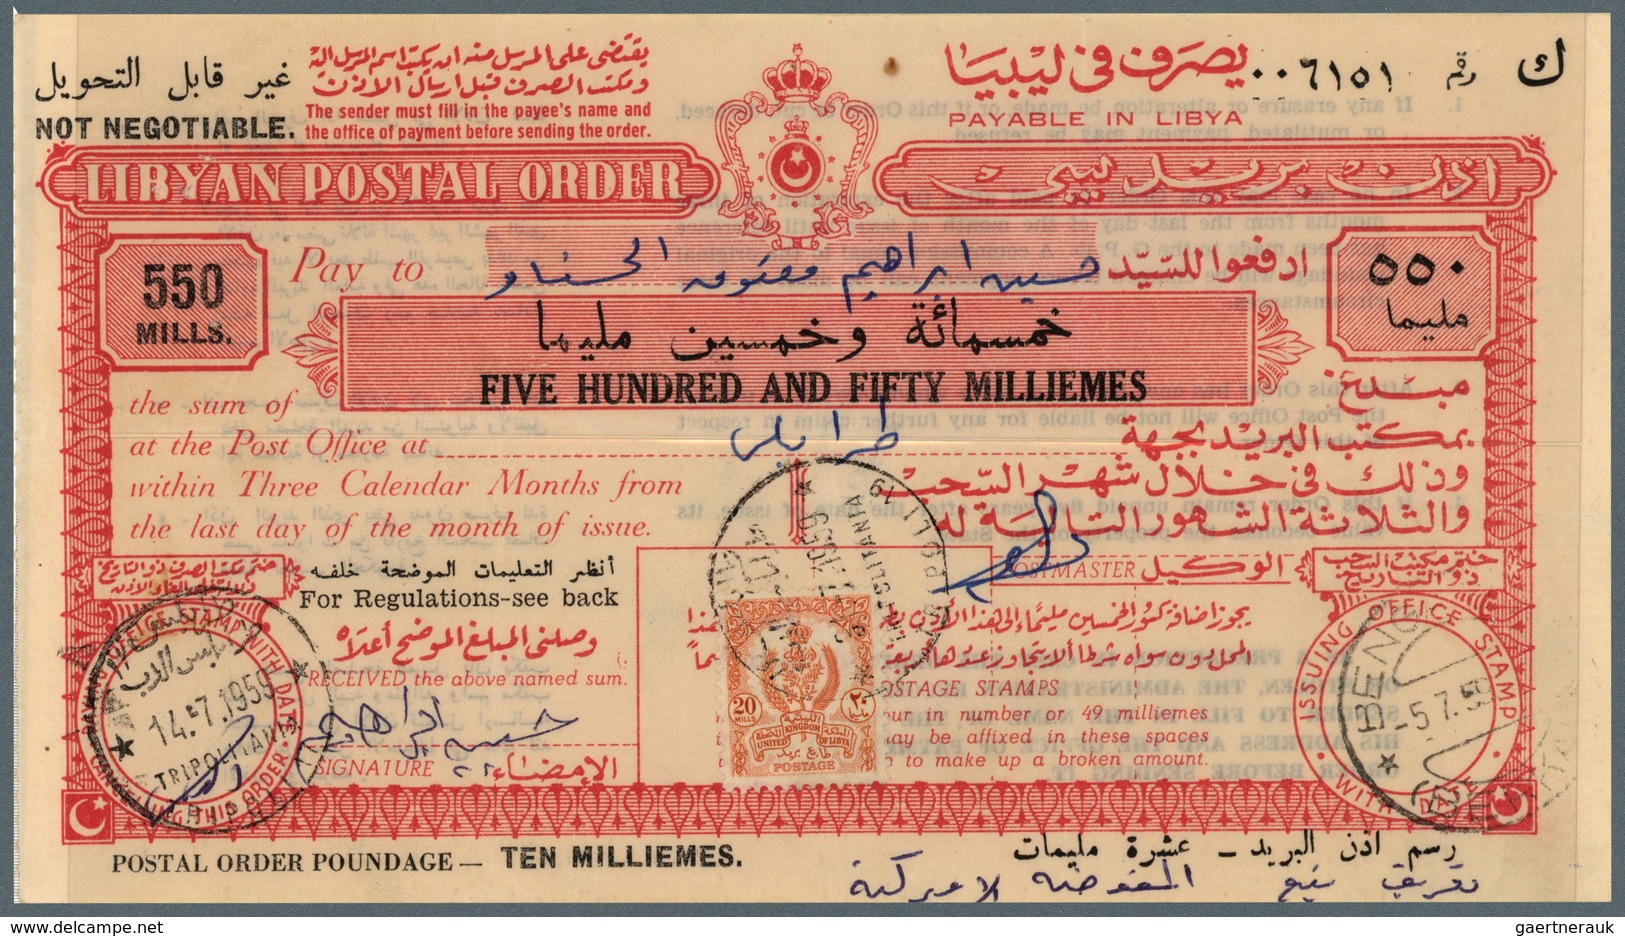 يقتضى على المرسل منه ان يكتب اسم المرسل اليه
ومكتب الصرف قبل ارسال الاذن
غير قابل التحويل
NOT NEGOTIABLE.
The sender must fill in the payee's name and
the office of payment before sending the order.
يصرف فى ليبيا
PAYABLE IN LIBYA
ك رقم ٠٠٦١٥١
LIBYAN POSTAL ORDER
اذن بريد ليبى
550
MILLS.
Pay to
ادفعوا للسيد حسين ابراهيم
٥٥٠
مليما
خمسمائة وخمسين مليما
FIVE HUNDRED AND FIFTY MILLIEMES
the sum of
مبلغ
at the Post Office at
بمكتب البريد بجهة طرابلس
within Three Calendar Months from
وذلك فى خلال شهر السحب
the last day of the month of issue.
والثلاثة شهور التالية له
أنظر التعليمات الموضحة خلفه
For Regulations-see back
POSTMASTER الوكيل
ختم مكتب السحب
ذو التاريخ
وصلنى المبلغ الموضح أعلاه
RECEIVED the above named sum.
حسين ابراهيم
SIGNATURE الإمضاء
يجوز اضافة كسور الخمسين مليما الى هذا الاذن
OSTAGE STAMPS
our in number or 49 milliemes
ay be affixed in these spaces
to make up a broken amount.
20
MILLS
٢٠
المملكة الليبية المتحدة
UNITED KINGDOM OF LIBYA
طوابع بريد
POSTAGE
طرابلس الغرب
14.-7.1959
TRIPOLITANIA
PAYING OFFICE STAMP WITH DATE
ISSUING OFFICE STAMP WITH DATE
BENG
-5.7.59
POSTAL ORDER POUNDAGE — TEN MILLIEMES.
رسم اذن البريد - عشرة مليمات
المفوضة الامريكية
gaertnerauk